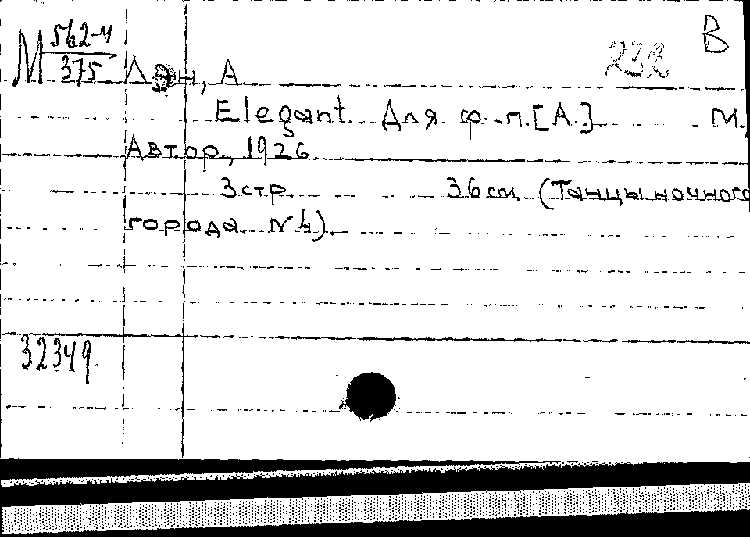 В
М 562-4
375
232
Лэн, А
Elegant. Для ф.-п. [А.] М.,
Автор, 1926
3 стр. 36 см (Танцы ночного
города. № 4).
32349